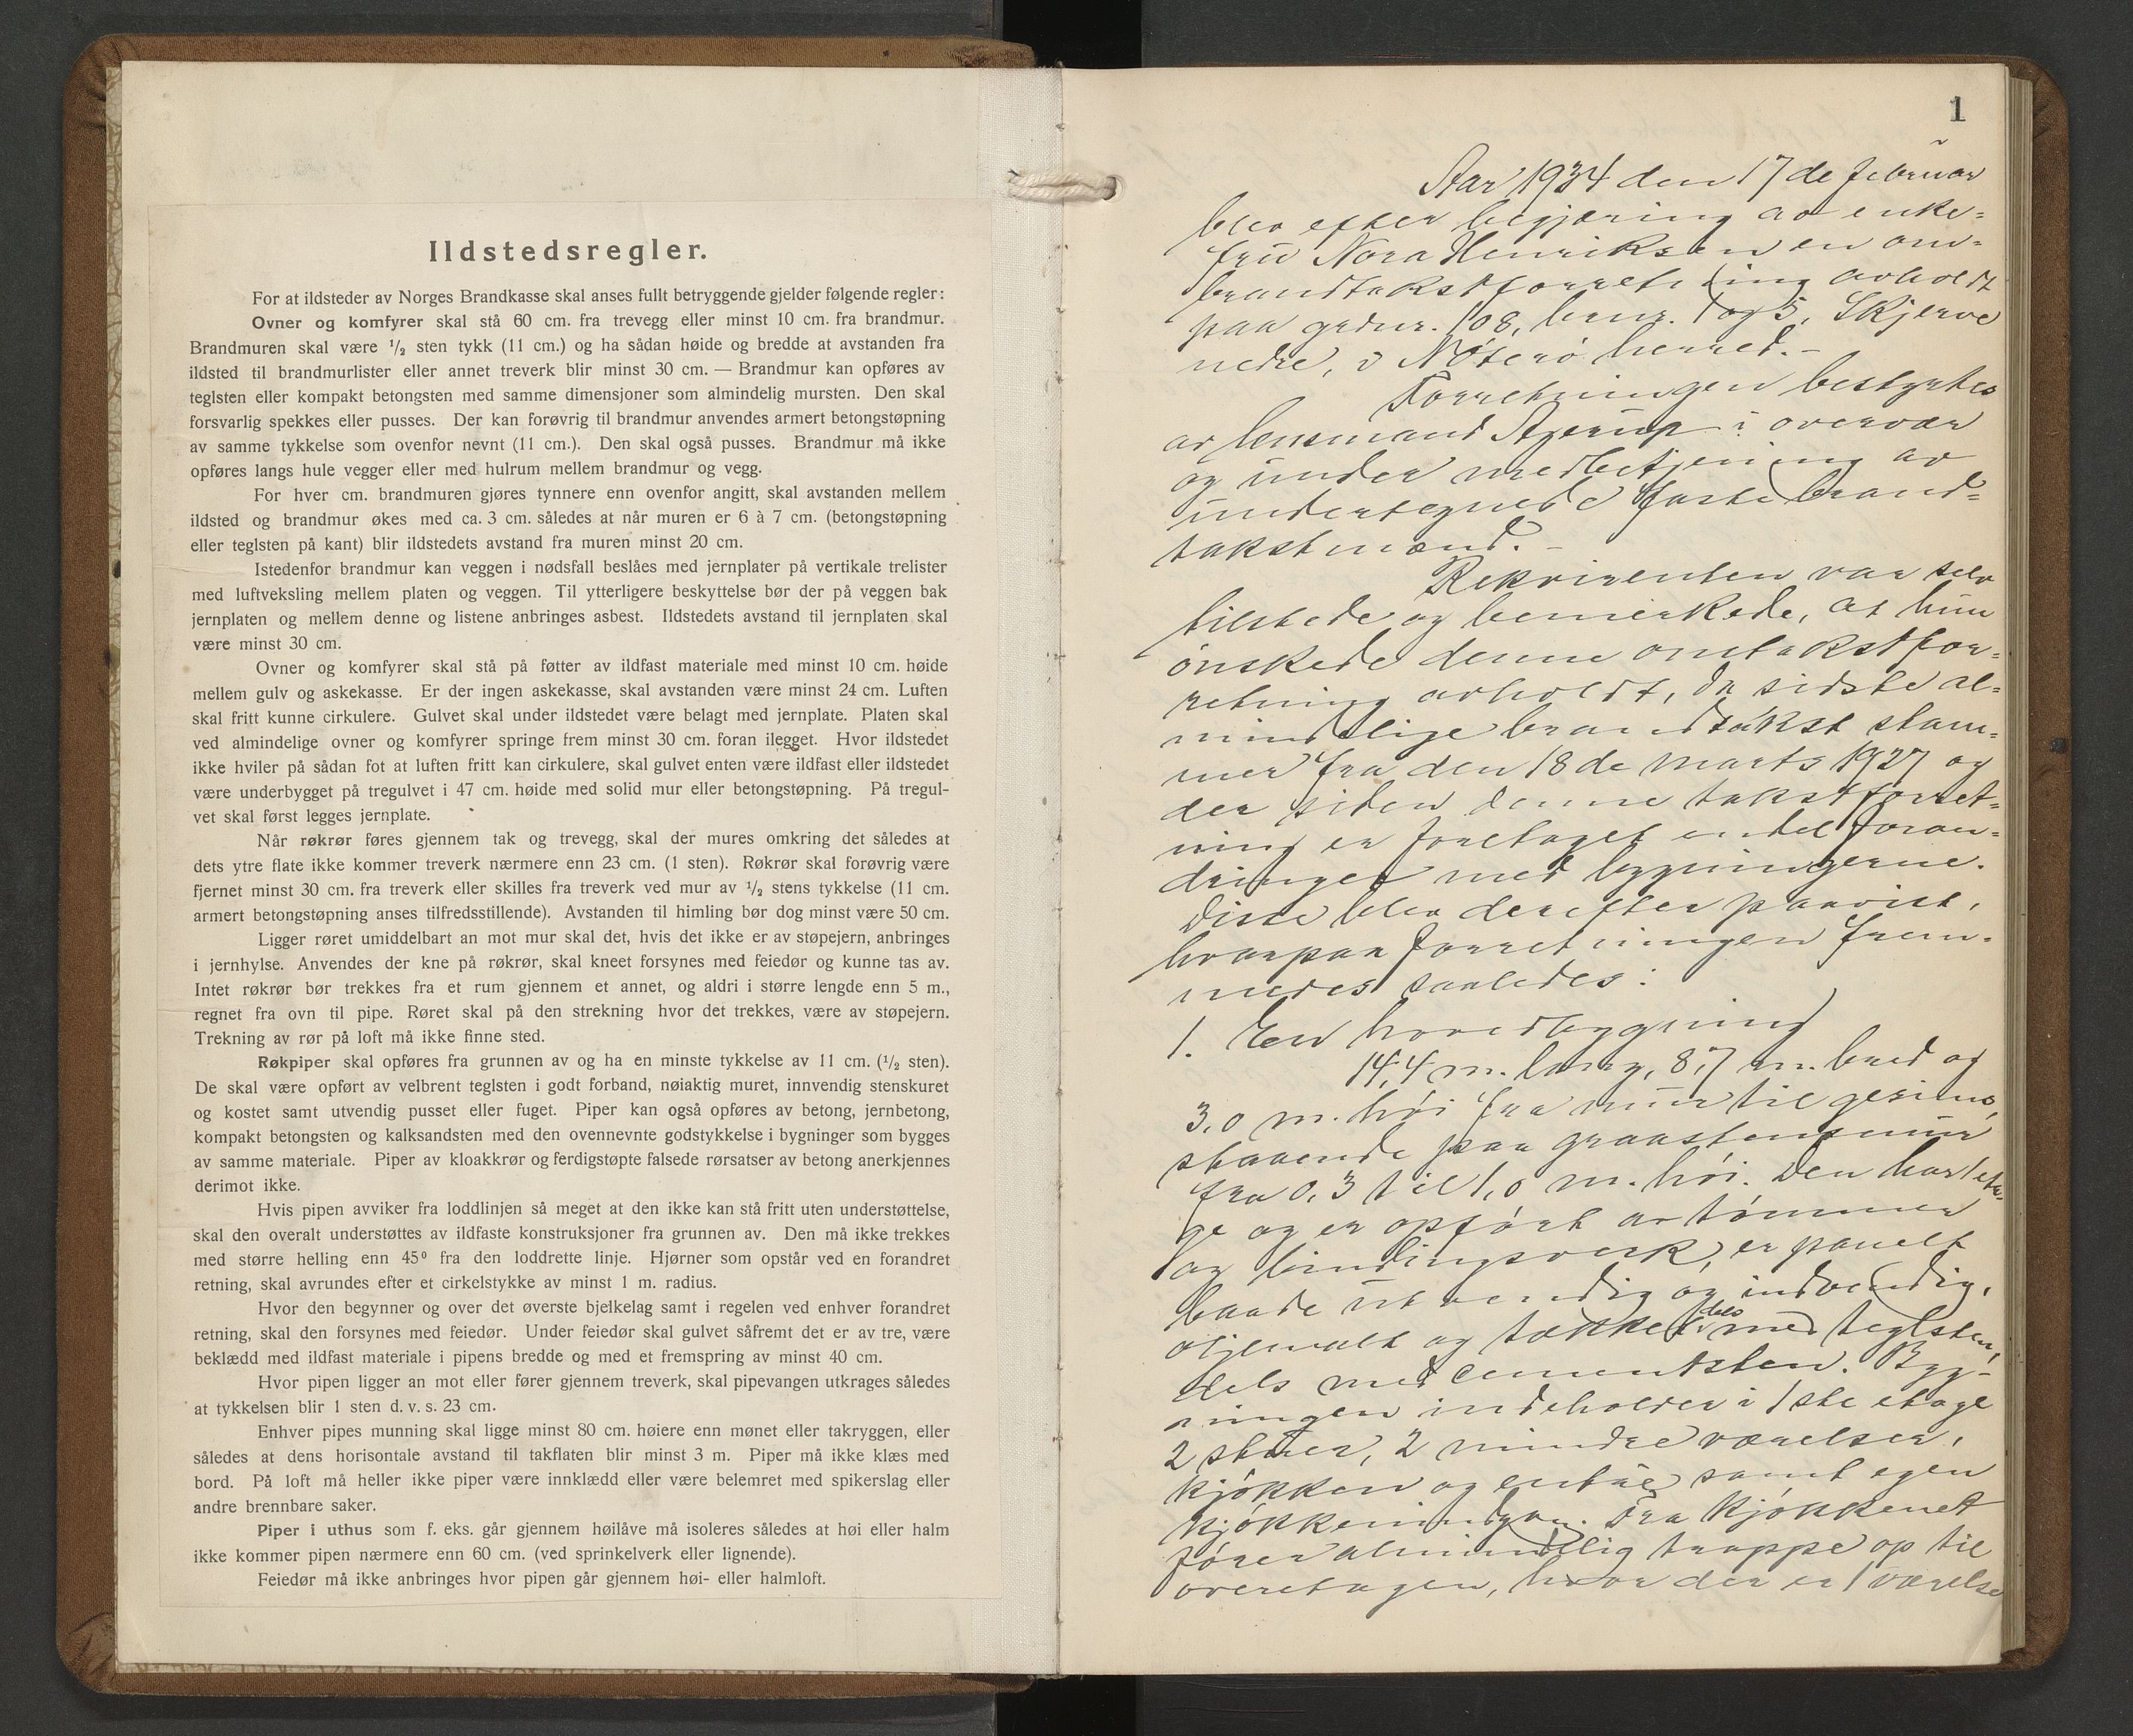 Ildstedsregler.
For at ildsteder av Norges Brandkasse skal anses fullt betryggende gjelder følgende regler:
Ovner og komfyrer skal stå 60 cm. fra trevegg eller minst 10 cm. fra brandmur.
Brandmuren skal være ½ sten tykk (11 cm.) og ha sådan høide og bredde at avstanden fra
ildsted til brandmurlister eller annet treverk blir minst 30 cm. — Brandmur kan opføres av
teglsten eller kompakt betongsten med samme dimensjoner som almindelig mursten. Den skal
forsvarlig spekkes eller pusses. Der kan forøvrig til brandmur anvendes armert betongstøpning
av samme tykkelse som ovenfor nevnt (11 cm.). Den skal også pusses. Brandmur må ikke
opføres langs hule vegger eller med hulrum mellem brandmur og vegg.
For hver cm. brandmuren gjøres tynnere enn ovenfor angitt, skal avstanden mellem
ildsted og brandmur økes med ca. 3 cm. således at når muren er 6 à 7 cm. (betongstøpning
eller teglsten på kant) blir ildstedets avstand fra muren minst 20 cm.
Istedenfor brandmur kan veggen i nødsfall beslåes med jernplater på vertikale trelister
med luftveksling mellem platen og veggen. Til ytterligere beskyttelse bør der på veggen bak
jernplaten og mellem denne og listene anbringes asbest. Ildstedets avstand til jernplaten skal
være minst 30 cm.
Ovner og komfyrer skal stå på føtter av ildfast materiale med minst 10 cm. høide
mellem gulv og askekasse. Er der ingen askekasse, skal avstanden være minst 24 cm. Luften
skal fritt kunne cirkulere. Gulvet skal under ildstedet være belagt med jernplate. Platen skal
ved almindelige ovner og komfyrer springe frem minst 30 cm. foran ilegget. Hvor ildstedet
ikke hviler på sådan fot at luften fritt kan cirkulere, skal gulvet enten være ildfast eller ildstedet
være underbygget på tregulvet i 47 cm. høide med solid mur eller betongstøpning. På tregul-
vet skal først legges jernplate.
Når røkrør føres gjennem tak og trevegg, skal der mures omkring det således at
dets ytre flate ikke kommer treverk nærmere enn 23 cm. (1 sten). Røkrør skal forøvrig være
fjernet minst 30 cm. fra treverk eller skilles fra treverk ved mur av ½ stens tykkelse (11 cm.
armert betongstøpning anses tilfredsstillende). Avstanden til himling bør dog minst være 50 cm.
Ligger røret umiddelbart an mot mur skal det, hvis det ikke er av støpejern, anbringes
i jernhylse. Anvendes der kne på røkrør, skal kneet forsynes med feiedør og kunne tas av.
Intet røkrør bør trekkes fra et rum gjennem et annet, og aldri i større lengde enn 5 m.,
regnet fra ovn til pipe. Røret skal på den strekning hvor det trekkes, være av støpejern.
Trekning av rør på loft må ikke finne sted.
Røkpiper skal opføres fra grunnen av og ha en minste tykkelse av 11 cm. (½ sten).
De skal være opført av velbrent teglsten i godt forband, nøiaktig muret, innvendig stenskuret
og kostet samt utvendig pusset eller fuget. Piper kan også opføres av betong, jernbetong,
kompakt betongsten og kalksandsten med den ovennevnte godstykkelse i bygninger som bygges
av samme materiale. Piper av kloakkrør og ferdigstøpte falsede rørsatser av betong anerkjennes
derimot ikke.
Hvis pipen avviker fra loddlinjen så meget at den ikke kan stå fritt uten understøttelse,
skal den overalt understøttes av ildfaste konstruksjoner fra grunnen av. Den må ikke trekkes
med større helling enn 45⁰ fra den loddrette linje. Hjørner som opstår ved en forandret
retning, skal avrundes efter et cirkelstykke av minst 1 m. radius.
Hvor den begynner og over det øverste bjelkelag samt i regelen ved enhver forandret
retning, skal den forsynes med feiedør. Under feiedør skal gulvet såfremt det er av tre, være
beklædd med ildfast materiale i pipens bredde og med et fremspring av minst 40 cm.
Hvor pipen ligger an mot eller fører gjennem treverk, skal pipevangen utkrages således
at tykkelsen blir 1 sten d. v. s. 23 cm.
Enhver pipes munning skal ligge minst 80 cm. høiere enn mønet eller takryggen, eller
således at dens horisontale avstand til takflaten blir minst 3 m. Piper må ikke klæs med
bord. På loft må heller ikke piper være innklædd eller være belemret med spikerslag eller
andre brennbare saker.
Piper i uthus som f. eks. går gjennem høilåve må isoleres således at høi eller halm
ikke kommer pipen nærmere enn 60 cm. (ved sprinkelverk eller lignende).
Feiedør må ikke anbringes hvor pipen går gjennem høi- eller halmloft.
1
Aar 1934 den 17de februar
blev efter begjæring av enke-
fru Nora Henriksen en om-
brandtakstforretning avholdt
paa grdnr. 108, brnr. 1 og 5, Skjerve
nedre, i Nøterø herred.-
Forretningen bestyrtes
av lensmand Agerup i overvær
og under medbetjening av
undertegnede faste brand-
takstmænd. -
Rekvirenten var selv
tilstede og bemerkede, at hun
ønskede denne omtakstfor-
retning avholdt, da sidste al-
mindelige brandtakst stam-
mer fra den 18de marts 1927 og
der siden denne takstforret-
ning er foretaget endel foran-
dringer med bygningerne.
Disse blev derefter paavist,
hvorpaa forretningen frem-
medes saaledes:
1. En hovedbygning
14,4 m. lang, 8,7 m. bred og
3,0 m. høi fra mur til gesims,
staaende paa graastensmur
fra 0,3 til 1,0 m. høi. Den har 1 eta-
ge og er opført av tømmer
og bindingsverk, er panelt
baade utvendig og indvendig,
oljemalt og tækket dels med teglsten,
dels med cementsten. Byg-
ningen indeholder i 1ste etage
2 stuer, 2 mindre værelser,
kjøkken og entré samt egen
kjøkkenindgan. Fra kjøkkenet
fører almindelig trappe op til
overetagen, hvor der er 1 værelse